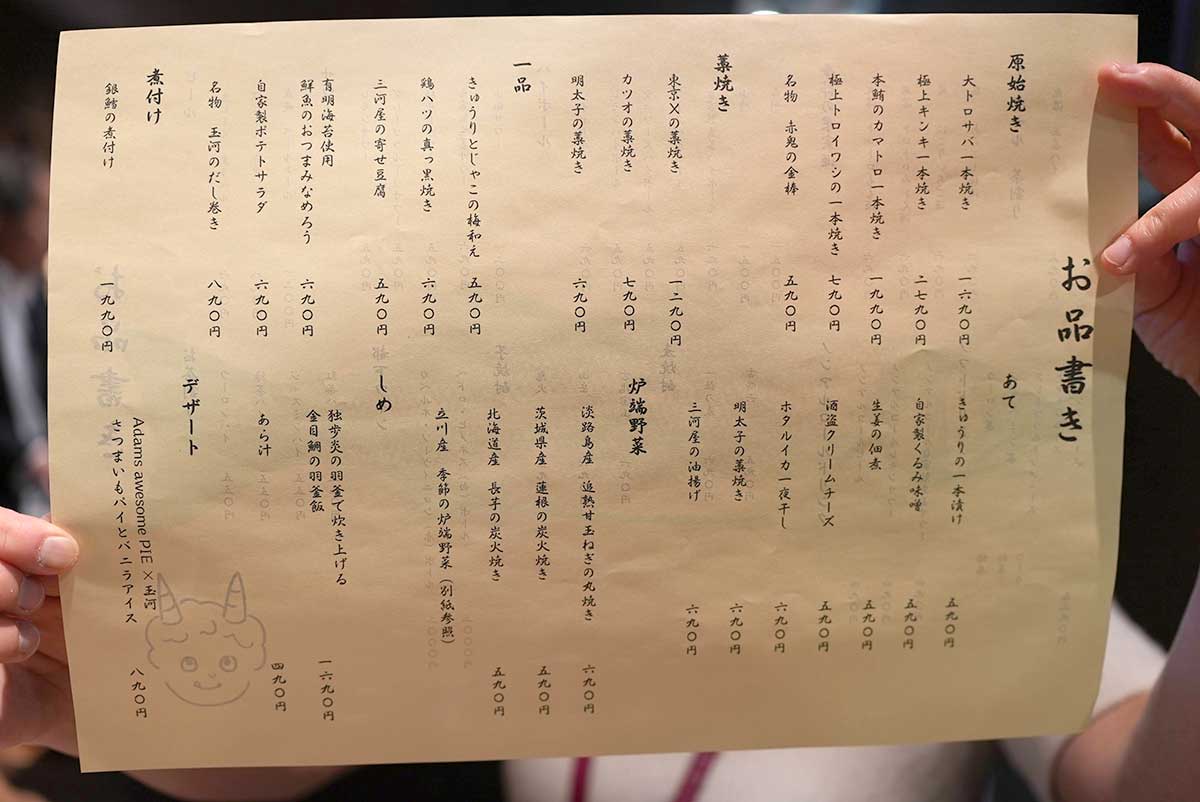 お品書き
原始焼き
大トロサバ一本焼き 一六九〇円
極上キンキ一本焼き 二七九〇円
本鮪のカマトロ一本焼き 一九九〇円
極上トロイワシの一本焼き 七九〇円
名物 赤鬼の金棒 五九〇円
藁焼き
東京Xの藁焼き 一二九〇円
カツオの藁焼き 七九〇円
明太子の藁焼き 六九〇円
一品
きゅうりとじゃこの梅和え 五九〇円
鶏ハツの真っ黒焼き 六九〇円
三河屋の寄せ豆腐 五九〇円
有明海苔使用
鮮魚のおつまみなめろう 六九〇円
自家製ポテトサラダ 六九〇円
名物 玉河のだし巻き 八九〇円
煮付け
銀鱈の煮付け 一九九〇円
あて
きゅうりの一本漬け 五九〇円
自家製くるみ味噌 五九〇円
生姜の佃煮 五九〇円
酒盗クリームチーズ 五九〇円
ホタルイカ一夜干し 六九〇円
明太子の藁焼き 六九〇円
三河屋の油揚げ 六九〇円
炉端野菜
淡路島産 追熟甘玉ねぎの丸焼き 六九〇円
茨城県産 蓮根の炭火焼き 五九〇円
北海道産 長芋の炭火焼き 五九〇円
立川産 季節の炉端野菜(別紙参照)
しめ
独歩炎の羽釜で炊き上げる
金目鯛の羽釜飯 一六九〇円
あら汁 四九〇円
デザート
Adams awesome PIE × 玉河
さつまいもパイとバニラアイス 八九〇円